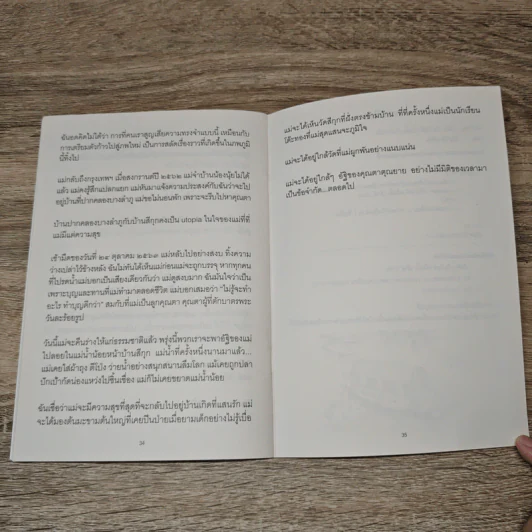 ฉันอดคิดไม่ได้ว่า การที่คนเราสูญเสียความทรงจำแบบนี้ เหมือนกับ
การเตรียมตัวก้าวไปสู่ภพใหม่ เป็นการสลัดเรื่องราวที่เกิดขึ้นในภพภูมิ
นี้ทิ้งไป
เมื่อกลับถึงกรุงเทพฯ เมื่อสงกรานต์ปี ๒๕๖๒ แม่จำบ้านน้องนุ้ยไม่ได้
แล้ว แม่คงรู้สึกแปลกแยก แม่หันมาแจ้งความประสงค์กับฉันว่าจะไป
อยู่บ้านที่ปากคลองบางลำภู แม่ขอไม่นอนพัก เพราะจะรีบไปหาคุณตา
บ้านปากคลองบางลำภูกับบ้านสีกุกคงเป็น utopia ในใจของแม่ที่ที่
แม่มีแต่ความสุข
เช้ามืดของวันที่ ๒๔ ตุลาคม ๒๕๖๓ แม่หลับไปอย่างสงบ ทิ้งความ
ว่างเปล่าไว้ข้างหลัง ฉันไม่ทันได้เห็นแม่ก่อนแม่จะถูกบรรจุ หากทุกคน
ที่ไปรดน้ำแม่บอกเป็นเสียงเดียวกันว่า แม่ดูสงบมาก ฉันมั่นใจว่าเป็น
เพราะบุญและทานที่แม่ทำมาตลอดชีวิต แม่บอกเสมอว่า "ไม่รู้จะทำ
อะไร ทำบุญดีกว่า" สมกับที่แม่เป็นลูกคุณตา คุณตาผู้ที่ตักบาตรพระ
วันละร้อยรูป
วันนี้แม่จะคืนร่างให้แก่ธรรมชาติแล้ว พรุ่งนี้พวกเราจะพาอัฐิของแม่
ไปลอยในแม่น้ำน้อยหน้าบ้านสีกุก แม่น้ำที่ครั้งหนึ่งนานมาแล้ว...
แม่เคยใส่ผ้าถุง ตีโป่ง ว่ายน้ำอย่างสนุกสนานลืมโลก แม้เคยถูกปลา
ปักเป้ากัดน่องแหว่งไปชิ้นเขื่อง แม่ก็ไม่เคยขยาดแม่น้ำน้อย
ฉันเชื่อว่าแม่จะมีความสุขที่สุดที่จะกลับไปอยู่บ้านเกิดที่แสนรัก แม่
จะได้มองต้นมะขามต้นใหญ่ที่เคยปีนป่ายเมื่อยามเด็กอย่างไม่รู้เบื่อ
34
แม่จะได้เห็นวัดสีกุกที่ฝั่งตรงข้ามบ้าน ที่ที่ครั้งหนึ่งแม่เป็นนักเรียน
โต๊ะทองที่แม่สุดแสนจะภูมิใจ
แม่จะได้อยู่ใกล้วัดที่แม่ผูกพันอย่างแนบแน่น
แม่จะได้อยู่ใกล้ๆ อัฐิของคุณตาคุณยาย อย่างไม่มีมิติของเวลามา
เป็นข้อจำกัด...ตลอดไป
35